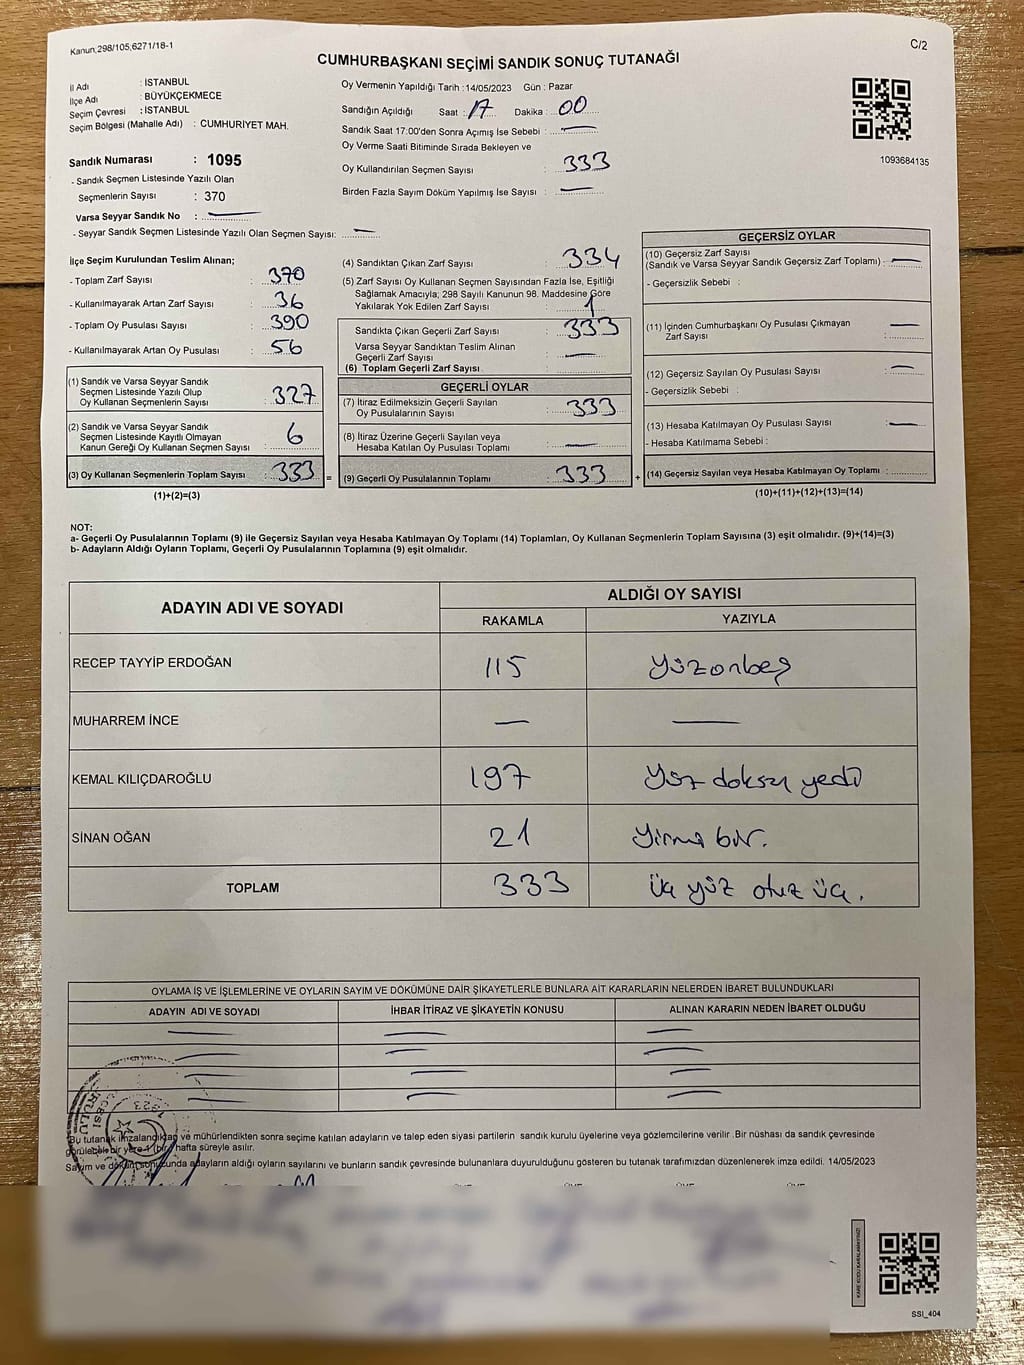 Kanun;298/105,6271/18-1
C/2
CUMHURBAŞKANI SEÇİMİ SANDIK SONUÇ TUTANAĞI
İl Adı : İSTANBUL
İlçe Adı : BÜYÜKÇEKMECE
Seçim Çevresi : İSTANBUL
Seçim Bölgesi (Mahalle Adı) : CUMHURİYET MAH.
Sandık Numarası : 1095
- Sandık Seçmen Listesinde Yazılı Olan
Seçmenlerin Sayısı : 370
Varsa Seyyar Sandık No :
- Seyyar Sandık Seçmen Listesinde Yazılı Olan Seçmen Sayısı:
Oy Vermenin Yapıldığı Tarih :14/05/2023 Gün : Pazar
Sandığın Açıldığı Saat : 17 Dakika : 00
Sandık Saat 17:00'den Sonra Açımış İse Sebebi :
Oy Verme Saati Bitiminde Sırada Bekleyen ve
Oy Kullandırılan Seçmen Sayısı : 333
Birden Fazla Sayım Döküm Yapılmış İse Sayısı :
1093684135
İlçe Seçim Kurulundan Teslim Alınan;
- Toplam Zarf Sayısı : 370
- Kullanılmayarak Artan Zarf Sayısı : 36
- Toplam Oy Pusulası Sayısı : 390
- Kullanılmayarak Artan Oy Pusulası : 56
(1) Sandık ve Varsa Seyyar Sandık
Seçmen Listesinde Yazılı Olup
Oy Kullanan Seçmenlerin Sayısı : 327
(2) Sandık ve Varsa Seyyar Sandık
Seçmen Listesinde Kayıtlı Olmayan
Kanun Gereği Oy Kullanan Seçmen Sayısı : 6
(3) Oy Kullanan Seçmenlerin Toplam Sayısı : 333
(1)+(2)=(3)
=
(4) Sandıktan Çıkan Zarf Sayısı : 334
(5) Zarf Sayısı Oy Kullanan Seçmen Sayısından Fazla İse, Eşitliği
Sağlamak Amacıyla, 298 Sayılı Kanunun 98. Maddesine Göre
Yakılarak Yok Edilen Zarf Sayısı : 1
Sandıkta Çıkan Geçerli Zarf Sayısı : 333
Varsa Seyyar Sandıktan Teslim Alınan
Geçerli Zarf Sayısı :
(6) Toplam Geçerli Zarf Sayısı :
GEÇERLİ OYLAR
(7) İtiraz Edilmeksizin Geçerli Sayılan
Oy Pusulalarının Sayısı : 333
(8) İtiraz Üzerine Geçerli Sayılan veya
Hesaba Katılan Oy Pusulası Toplamı :
(9) Geçerli Oy Pusulalarının Toplamı : 333
+
GEÇERSİZ OYLAR
(10) Geçersiz Zarf Sayısı
(Sandık ve Varsa Seyyar Sandık Geçersiz Zarf Toplamı) :
- Geçersizlik Sebebi :
(11) İçinden Cumhurbaşkanı Oy Pusulası Çıkmayan
Zarf Sayısı :
(12) Geçersiz Sayılan Oy Pusulası Sayısı :
- Geçersizlik Sebebi :
(13) Hesaba Katılmayan Oy Pusulası Sayısı :
- Hesaba Katılmama Sebebi :
(14) Geçersiz Sayılan veya Hesaba Katılmayan Oy Toplamı :
(10)+(11)+(12)+(13)=(14)
NOT:
a- Geçerli Oy Pusulalarının Toplamı (9) ile Geçersiz Sayılan veya Hesaba Katılmayan Oy Toplamı (14) Toplamları, Oy Kullanan Seçmenlerin Toplam Sayısına (3) eşit olmalıdır. (9)+(14)=(3)
b- Adayların Aldığı Oyların Toplamı, Geçerli Oy Pusulalarının Toplamına (9) eşit olmalıdır.
ADAYIN ADI VE SOYADI
ALDIĞI OY SAYISI
RAKAMLA YAZIYLA
RECEP TAYYİP ERDOĞAN 115 Yüzonbeş
MUHARREM İNCE
KEMAL KILIÇDAROĞLU 197 Yüz doksan yedi
SİNAN OĞAN 21 Yirmi bir.
TOPLAM 333 üç yüz otuz üç.
OYLAMA İŞ VE İŞLEMLERİNE VE OYLARIN SAYIM VE DÖKÜMÜNE DAİR ŞİKAYETLERLE BUNLARA AİT KARARLARIN NELERDEN İBARET BULUNDUKLARI
ADAYIN ADI VE SOYADI İHBAR İTİRAZ VE ŞİKAYETİN KONUSU ALINAN KARARIN NEDEN İBARET OLDUĞU
1923
Bu tutanak imzalandıktan ve mühürlendikten sonra seçime katılan adayların ve talep eden siyasi partilerin sandık kurulu üyelerine veya gözlemcilerine verilir .Bir nüshası da sandık çevresinde
görülecek bir yere 1 (bir) hafta süreyle asılır.
Sayım ve döküm sonucunda adayların aldığı oyların sayılarını ve bunların sandık çevresinde bulunanlara duyurulduğunu gösteren bu tutanak tarafımızdan düzenlenerek imza edildi. 14/05/2023
SSI_404